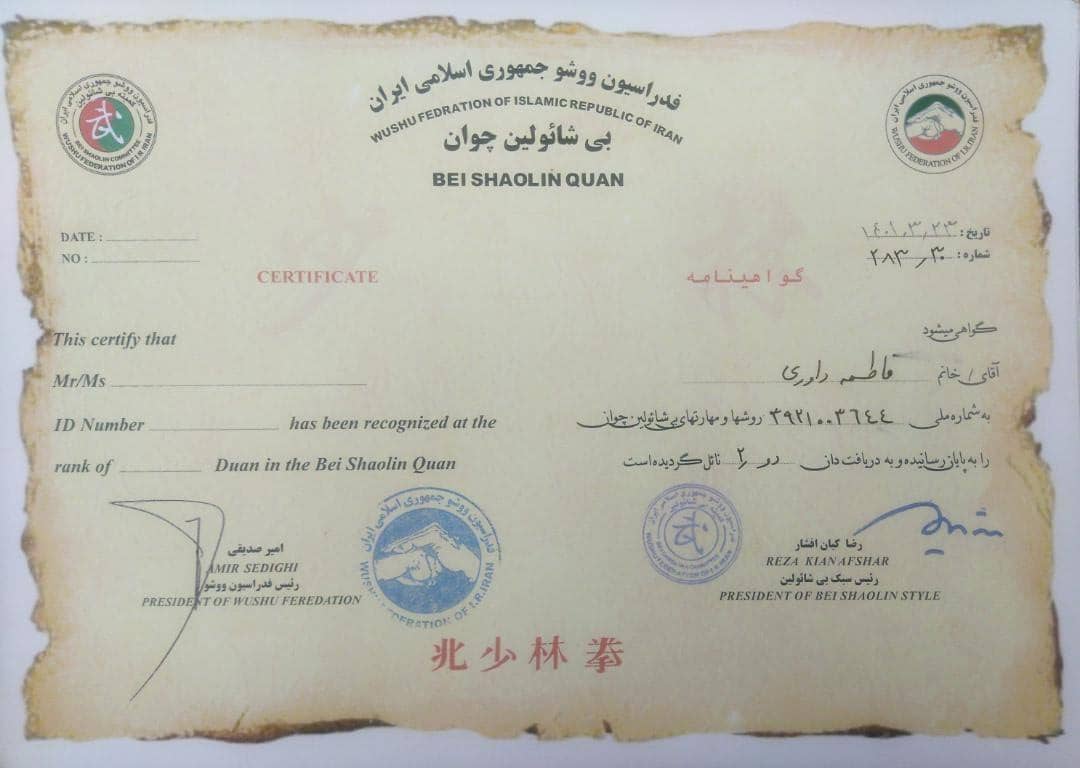 فدراسیون ووشو جمهوری اسلامی ایران
WUSHU FEDRATION OF ISLAMIC REPUBLIC OF IRAN
بی شائولین چوان
BEI SHAOLIN QUAN
فدراسیون ووشو جمهوری اسلامی ایران
کمیته بی شائولین
BEI SHAOLIN COMMITTEE
WUSHU FEDERATION OF I.R. IRAN
فدراسیون ووشو جمهوری اسلامی ایران
WUSHU FEDERATION OF I.R.IRAN
DATE :
NO :
تاریخ : ۱۴۰۱٫۳٫۲۳
شماره : ۲۸۳٫۳۰
CERTIFICATE
گواهینامه
This certify that
Mr/Ms
ID Number has been recognized at the
rank of Duan in the Bei Shaolin Quan
گواهی میشود
آقای / خانم فاطمه داوری
به شماره ملی ۳۹۲۱۰۰۳۶۴۴ روشها و مهارتهای بی شائولین چوان
را به پایان رسانیده و به دریافت دان دو ۲ نائل گردیده است
امیر صدیقی
AMIR SEDIGHI
رئیس فدراسیون ووشو
PRESIDENT OF WUSHU FEREDATION
فدراسیون ووشو جمهوری اسلامی ایران
WUSHU FEDERATION OF I.R.IRAN
رضا کیان افشار
REZA KIANAFSHAR
رئیس سبک بی شائولین
PRESIDENT OF BEI SHAOLIN STYLE
北少林拳